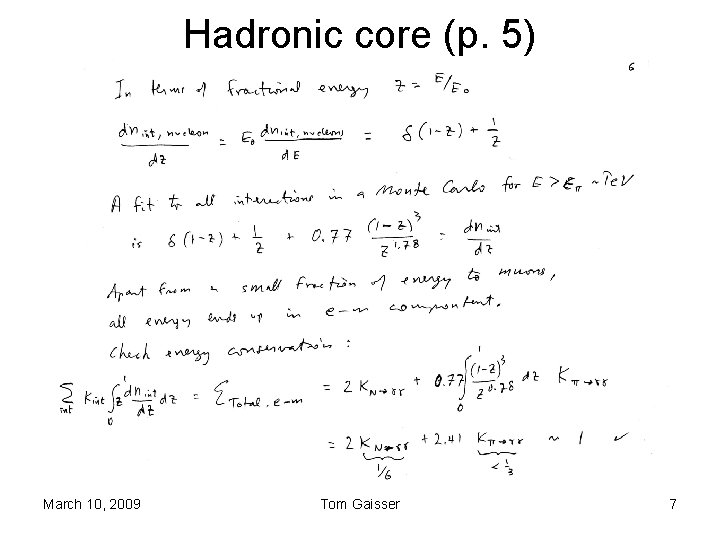 Hadronic core (p. 5)
6
In terms of fractional energy z = E/E₀
dn_int, nucleon/dz = E₀ dn_int, nucleons/dE = δ(1-z) + 1/z
A fit to all interactions in a Monte Carlo for E > ε_π ~ TeV
is δ(1-z) + 1/z + 0.77 (1-z)³/z^1.78 = dn_int/dz
Apart from a small fraction of energy to muons,
all energy ends up in e-m component.
Check energy conservation:
Σ_int K_int ∫₀¹ z dn_int/dz dz = Σ_Total, e-m = 2 K_N→γγ + 0.77 ∫₀¹ (1-z)³/z^0.78 dz K_π→γγ
= 2 K_N→γγ + 2.41 K_π→γγ ~ 1 ✓
1/6 < 1/3
March 10, 2009 Tom Gaisser 7